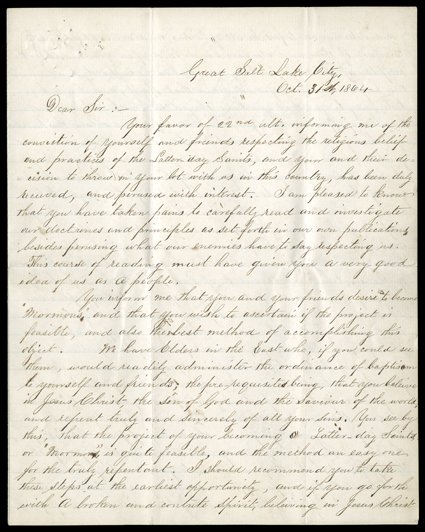 Great Salt Lake City,
Oct. 31st 1864
Dear Sir :-
Your favor of 22nd ult. informing me of the
conviction of yourself and friends respecting the religious belief
and practices of the Latter-day Saints, and your and their de-
cision to throw in your lot with us in this country, has been duly
received, and perused with interest. I am pleased to know
that you have taken pains to carefully read and investigate
our doctrines and principles as set forth in our own publications
besides perusing what our enemies have to say respecting us.
This course of reading must have given you a very good
idea of us as a people.
You inform me that you and your friends desire to become
"Mormons", and that you wish to ascertain if the project is
feasible, and also the best method of accomplishing this
object. We have Elders in the East who, if you could see
them, would readily administer the ordinance of baptism
to yourself and friends, the pre-requisites being, that you believe
in Jesus Christ the Son of God and the Saviour of the world
and repent truly and sincerely of all your sins. You see by
this, that the project of your becoming a Latter-day Saint
or "Mormon" is quite feasible, and the method an easy one
for the truly repentant. I should recommend you to take
these steps at the earliest opportunity, and if you go forth
with a broken and contrite spirit, believing in Jesus Christ